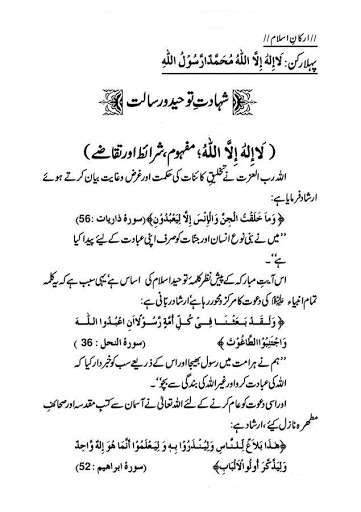 // ارکانِ اسلام //
پہلا رکن: لَااِلٰهَ اِلَّا اللّٰهُ مُحَمَّدٌ رَّسُوْلُ اللّٰهِ
شہادتِ توحید ورسالت
( لَااِلٰهَ اِلَّا اللّٰهُ؛ مفہوم، شرائط اور تقاضے )
اللہ رب العزت نے تخلیقِ کائنات کی حکمت اور غرض وغایت بیان کرتے ہوئے
ارشاد فرمایا ہے:
﴿ وَمَا خَلَقْتُ الْجِنَّ وَالْاِنْسَ اِلَّا لِيَعْبُدُوْنِ﴾(سورۃ ذاریات :56)
’’میں نے بنی نوع انسان اور جنّات کو صرف اپنی عبادت کے لیے پیدا کیا
ہے‘‘۔
اس آیتِ مبارکہ کے پیشِ نظر کلمۂ توحید اسلام کی اساس ہے‘ یہی سبب ہے کہ یہ کلمہ
تمام انبیاء ﷩ کی دعوت کا مرکز ومحور رہا ہے‘ ارشادِ ربّانی ہے:
﴿ وَلَقَدْ بَعَثْنَا فِىْ كُلِّ اُمَّةٍ رَّسُوْلًا اَنِ اعْبُدُوا اللّٰهَ
وَاجْتَنِبُوا الطَّاغُوْتَ ﴾ (سورۃ النحل : 36 )
’’ہم نے ہر امت میں رسول بھیجا اور اس کے ذریعے سب کو خبردار کیا کہ
اللہ کی عبادت کرو اور غیر اللہ کی بندگی سے بچو‘‘۔
اور اسی دعوت کو عام کرنے کے لئے اللہ تعالیٰ نے آسمان سے کتبِ مقدسہ اور صحائفِ
مطھرہ نازل کیئے‘ ارشاد ہے:
﴿هٰذَا بَلَاغٌ لِّلنَّاسِ وَلِيُنْذَرُوْا بِهٖ وَلِيَعْلَمُوْٓا اَنَّمَا هُوَ اِلٰهٌ وَّاحِدٌ
وَلِيَذَّكَّرَ اُولُوا الْاَلْبَابِ﴾ (سورۃ ابراھیم : 52)